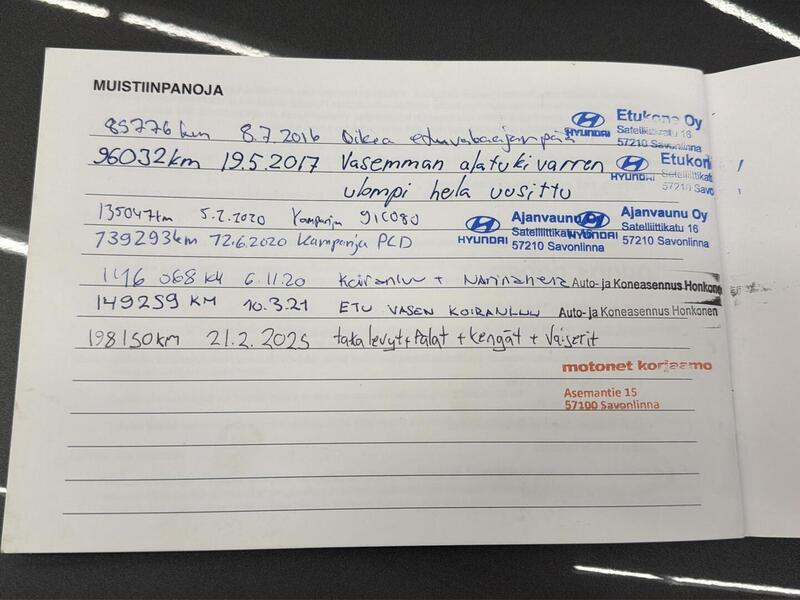 MUISTIINPANOJA
85776km 8.7.2016 Oikea HYUNDAI Etukone Oy
Satelliittikatu 16
57210 Savonlinna
96032km 19.5.2017 Vasemman alatukivarren HYUNDAI Etukon
Satelliittikatu
57210 Savo
ulompi hela uusittu
135047km 5.2.2020 Kampanja 91C080 HYUNDAI Ajanvaunu Oy
Satelliittikatu 16
57210 Savonlinna
HYUNDAI Ajanvaunu Oy
Satelliittikatu 16
57210 Savonlinna
139293km 12.6.2020 Kampanja PCD
146 068 km 6.11.20 Koiranluu + Auto- ja Koneasennus Honkonen
149259 KM 10.3.21 ETU VASEN KOIRANLUU Auto- ja Koneasennus Honkonen
198150KM 21.2.2025 taka levyt + Palat + Kengät + Vaijerit
motonet korjaamo
Asemantie 15
57100 Savonlinna